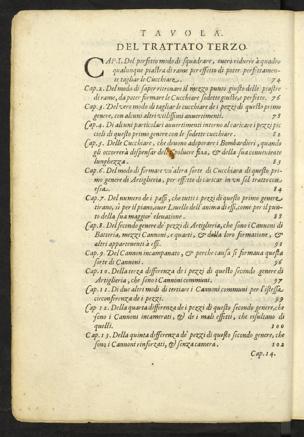 TAVOLA
DEL TRATTATO TERZO.
CAP. 1. Del perfetto modo di squadrare, overo ridurre à quadro
qualunque piastra di rame per effetto di poter perfettamen-
te tagliar le Cucchiare. 74
Cap. 2. Del modo di saper ritrovare il mezzo punto giusto delle piastre
di rame, da poter formare le Cucchiare sodette giuste, e perfette. 76
Cap. 3. Del vero modo di tagliar le cucchiare de i pezzi di questo primo
genere, con alcuni altri utilissimi avvertimenti. 78
Cap. 4. Di alcuni particolari avvertimenti intorno al caricare i pezzi pic-
cioli di questo primo genere con le sodette cucchiare. 81
Cap. 5. Delle Cucchiare, che devono adoperare i Bombardieri, quando
gli occorrerà dispensar della polvere fina, & della sua conveniente
lunghezza. 83
Cap. 6. Del modo di formare un'altra sorte di Cucchiara di questo pri-
mo genere di Artiglieria, per effetto di caricar in un sol tratto con
essa. 84
Cap. 7. Del numero de i passi, che tutti i pezzi di questo primo genere
tirano, sì per il piano, over Livello dell'anima di essi, come per il pun-
to della sua maggior elevatione. 88
Cap. 8. Del secondo genere de' pezzi di Artiglieria, che sono i Canoni da
Batteria, mezzi Cannoni, e quarti, & della loro formatione, & altri
appartenenti à essi. 91
Cap. 9. Del Cannon incamerato, & perche causa si formava questa
sorte di Cannoni. 96
Cap. 10. Della terza differenza de i pezzi di questo secondo genere di
Artiglieria, che sono i Cannoni communi. 97
Cap. 11. Di due altri modi di terziare i Cannoni communi per l'istessa
circonferenza de i pezzi. 99
Cap. 12. Della quarta differenza de i pezzi di questo secondo genere, che
sono i Cannoni incamerati, & de i mali effetti, che risultano di
quelli. 100
Cap. 13. Della quinta differenza de' pezzi di questo secondo genere, che
sono i Cannoni rinforzati, & senza camera. 102
Cap. 14.